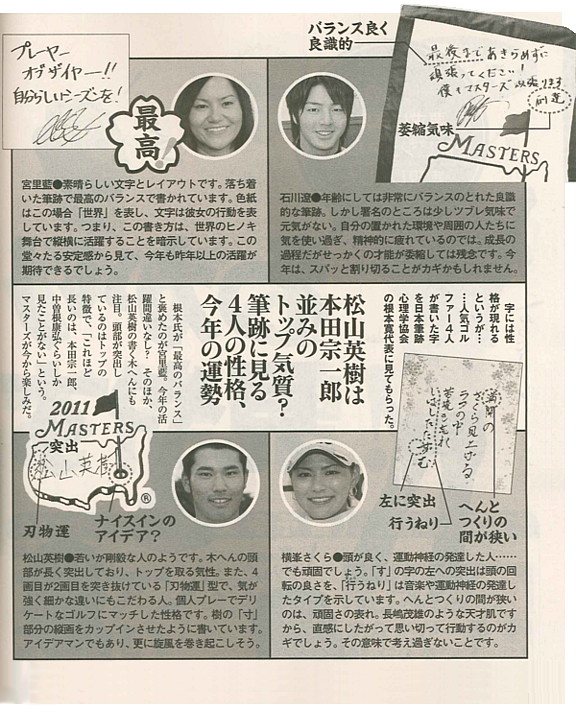 プレーヤー
オブザイヤー!!
自分らしいシーズンを!
最高!
バランス良く
良識的
最後まであきらめずに
頑張ってください!
僕もマスターズ頑張ります
石川遼
萎縮気味
MASTERS
宮里藍●素晴らしい文字とレイアウトです。落ち着
いた筆跡で最高のバランスで書かれています。色紙
はこの場合「世界」を表し、文字は彼女の行動を表
しています。つまり、この書き方は、世界のヒノキ
舞台で縦横に活躍することを暗示しています。この
堂々たる安定感から見て、今年も昨年以上の活躍が
期待できるでしょう。
石川遼●年齢にしては非常にバランスのとれた良識
的な筆跡。しかし署名のところは少しツブレ気味で
元気がない。自分の置かれた環境や周囲の人たちに
気を使い過ぎ、精神的に疲れているのでは。成長の
過程だがせっかくの才能が萎縮しては残念です。今
年は、スパッと割り切ることがカギかもしれません。
字には性
格が現れる
というが…
人気ゴル
ファー4人
が書いた字
を日本筆跡
心理学協会
の根本寛代表に見てもらった。
松山英樹は
本田宗一郎
並みの
トップ気質?
筆跡に見る
4人の性格、
今年の運勢
根本氏が「最高のバランス」
と褒めたのが宮里藍。今年の活
躍間違いなし? そのほか、
松山英樹の書く木へんにも
注目。頭部が突出し
ているのはトップの
特徴で、「これほど
長いのは、本田宗一郎、
中曽根康弘ぐらいしか
見たことがない」という。
マスターズが今から楽しみだ。
2011
MASTERS
突出
松山英樹
®
刃物運
ナイスインの
アイデア?
満開の
さくら見上げる
ラフの中
苦境も忘れ
いましたたずむ
左に突出
行うねり
へんと
つくりの
間が狭い
松山英樹●若いが剛毅な人のようです。木へんの頭
部が長く突出しており、トップを取る気性。また、4
画目が2画目を突き抜けている「刃物運」型で、気が
強く細かな違いにもこだわる人。個人プレーでデリ
ケートなゴルフにマッチした性格です。樹の「寸」
部分の縦画をカップインさせたように書いています。
アイデアマンでもあり、更に旋風を巻き起こしそう。
横峯さくら●頭が良く、運動神経の発達した人……
でも頑固でしょう。「す」の字の左への突出は頭の回
転の良さを、「行うねり」は音楽や運動神経の発達し
たタイプを示しています。へんとつくりの間が狭い
のは、頑固さの表れ。長嶋茂雄のような天才肌です
から、直感にしたがって思い切って行動するのがカ
ギでしょう。その意味で考え過ぎないことです。